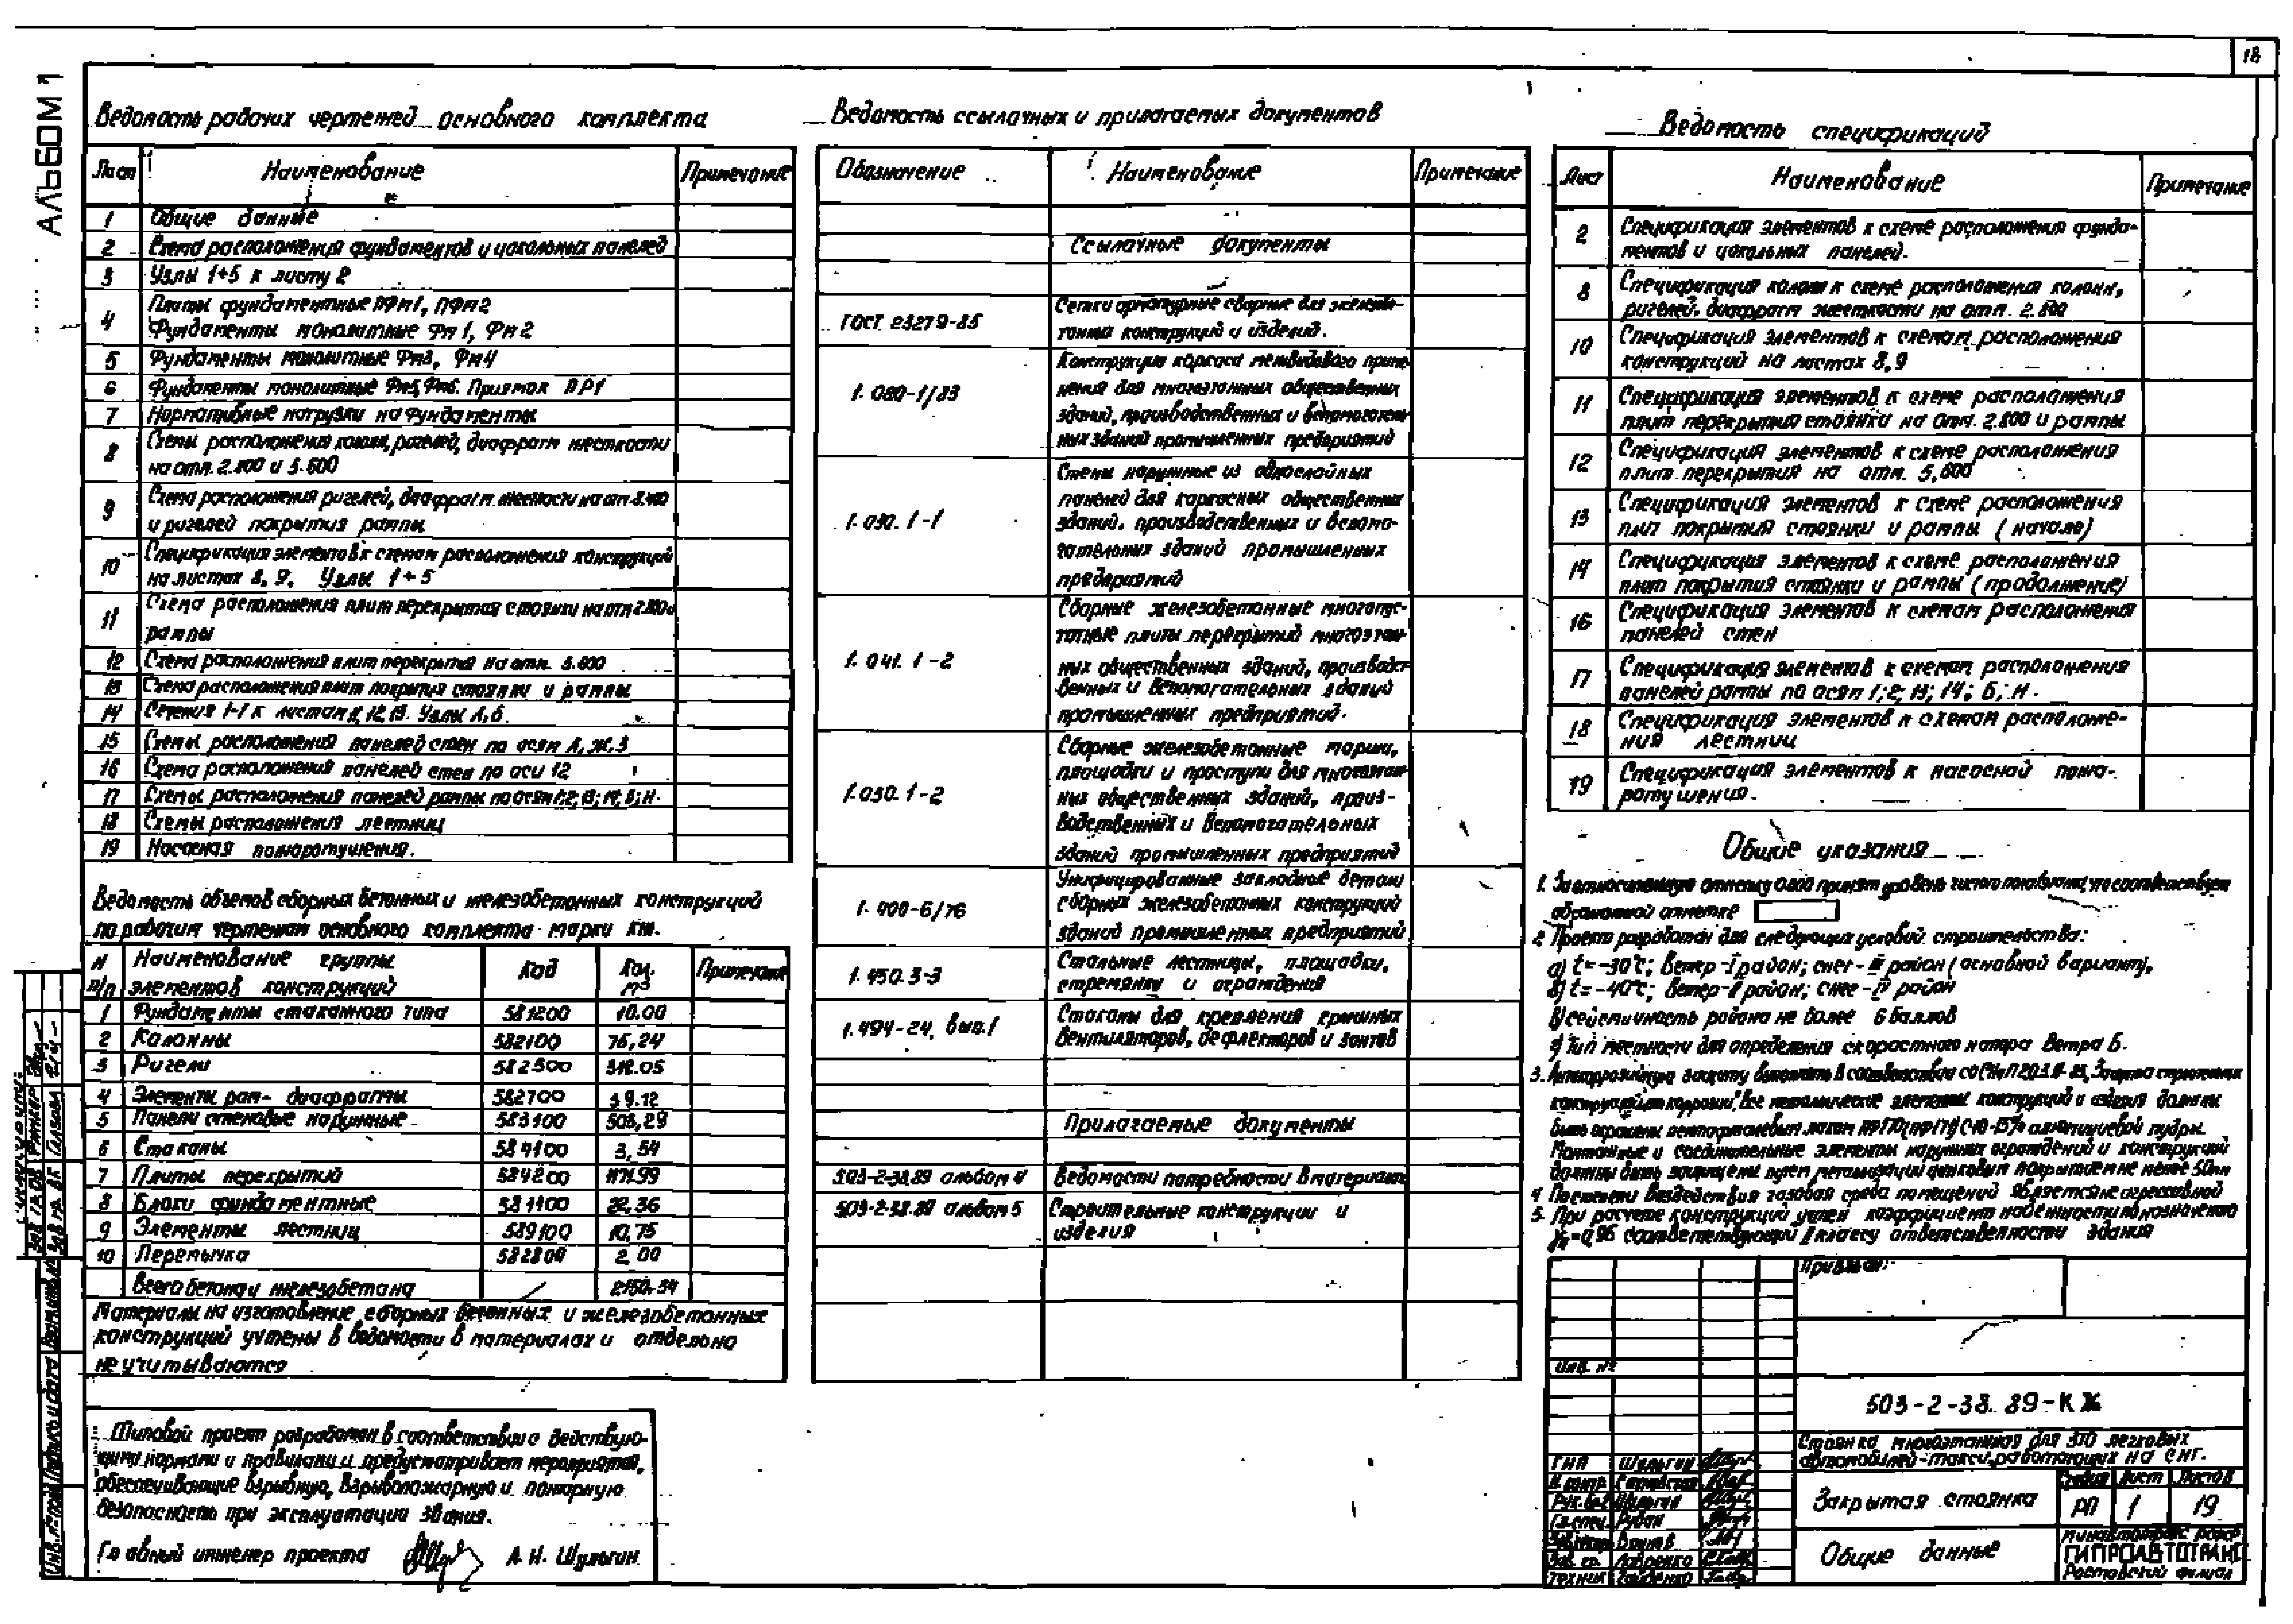 18
АЛЬБОМ 1
Ведомость рабочих чертежей основного комплекта
Лист Наименование Примечание
1 Общие данные
2 Схема расположения фундаментов и цокольных панелей
3 Узлы 1÷5 к листу 2
4 Плиты фундаментные ПФм1, ПФм2
Фундаменты монолитные Фм1, Фм2
5 Фундаменты монолитные Фм3, Фм4
6 Фундаменты монолитные Фм5, Фм6. Приямок ПР1
7 Нормативные нагрузки на фундаменты
8 Схемы расположения колонн, ригелей, диафрагм жесткости
на отм. 2.800 и 5.600
9 Схема расположения ригелей, диафрагм жесткости на отм 8.400
и ригелей покрытия рампы
10 Спецификация элементов к схемам расположения конструкций
на листах 8, 9. Узлы 1÷5
11 Схема расположения плит перекрытия стоянки на отм 2.800 и
рампы
12 Схема расположения плит перекрытия на отм. 5.600
13 Схема расположения плит покрытия стоянки и рампы
14 Сечения 1-1 к листам 11, 12, 13. Узлы А, Б.
15 Схемы расположения панелей стен по осям А, Ж, 3
16 Схема расположения панелей стен по оси 12
17 Схемы расположения панелей рампы по осям 1; 2; 13; 14; Б; И.
18 Схемы расположения лестниц
19 Насосная пожаротушения.
Ведомость объемов сборных бетонных и железобетонных конструкций
по рабочим чертежам основного комплекта марки КЖ.
N п/п Наименование группы элементов конструкций Код Кол. м³ Примечание
1 Фундаменты стаканного типа 581200 10.00
2 Колонны 582100 76,24
3 Ригели 582500 318.05
4 Элементы рам- диафрагмы 582700 39.12
5 Панели стеновые наружные 583100 503,29
6 Стаканы 584100 3,54
7 Плиты перекрытий 584200 1171.99
8 Блоки фундаментные 581100 22,36
9 Элементы лестниц 589100 10,75
10 Перемычка 582800 2,00
Всего бетона и железобетона 2150.34
Материалы на изготовление сборных бетонных и железобетонных
конструкций учтены в ведомости в материалах и отдельно
не учитываются
Типовой проект разработан в соответствии с действую-
щими нормами и правилами и предусматривает мероприятия,
обеспечивающие взрывную, взрывопожарную и пожарную
безопасность при эксплуатации здания.
Главный инженер проекта А. Н. Шульгин
Ведомость ссылочных и прилагаемых документов
Обозначение Наименование Примечание
Ссылочные документы
ГОСТ 23279-85 Сетки арматурные сварные для железобе-
тонных конструкций и изделий.
1.020-1/83 Конструкции каркаса межвидового приме-
нения для многоэтажных общественных
зданий, производственных и вспомогатель-
ных зданий промышленных предприятий
1.030.1-1 Стены наружные из однослойных
панелей для каркасных общественных
зданий, производственных и вспомо-
гательных зданий промышленных
предприятий
1.041.1-2 Сборные железобетонные многопус-
тотные плиты перекрытий многоэтаж-
ных общественных зданий, производст-
венных и вспомогательных зданий
промышленных предприятий.
1.050.1-2 Сборные железобетонные марши,
площадки и проступи для многоэтаж-
ных общественных зданий, произ-
водственных и вспомогательных
зданий промышленных предприятий
1.400-6/76 Унифицированные закладные детали
сборных железобетонных конструкций
зданий промышленных предприятий
1.450.3-3 Стальные лестницы, площадки,
стремянки и ограждения
1.494-24, вып.1 Стаканы для крепления крышных
вентиляторов, дефлекторов и зонтов
Прилагаемые документы
503-2-38.89 альбом 4 Ведомости потребности в материалах
503-2-38.89 альбом 5 Строительные конструкции и
изделия
Ведомость спецификаций
Лист Наименование Примечание
2 Спецификация элементов к схеме расположения фунда-
ментов и цокольных панелей.
8 Спецификация колонн к схеме расположения колонн,
ригелей, диафрагм жесткости на отм. 2.800
10 Спецификация элементов к схемам расположения
конструкций на листах 8, 9
11 Спецификация элементов к схеме расположения
плит перекрытия стоянки на отм. 2.800 и рампы
12 Спецификация элементов к схеме расположения
плит перекрытия на отм. 5,600
13 Спецификация элементов к схеме расположения
плит покрытия стоянки и рампы (начало)
14 Спецификация элементов к схеме расположения
плит покрытия стоянки и рампы (продолжение)
16 Спецификация элементов к схемам расположения
панелей стен
17 Спецификация элементов к схемам расположения
панелей рампы по осям 1; 2; 13; 14; Б; И.
18 Спецификация элементов к схемам расположе-
ния лестниц
19 Спецификация элементов к насосной пожа-
ротушения.
Общие указания
1. За относительную отметку 0.000 принят уровень чистого пола, что соответствует
абсолютной отметке
2. Проект разработан для следующих условий строительства:
а) t=-30°С; ветер-I район; снег-III район (основной вариант),
б) t=-40°С; ветер-II район; снег-IV район
в) сейсмичность района не более 6 баллов
г) Тип местности для определения скоростного напора ветра Б.
3. Антикоррозийную защиту выполнять в соответствии со СНиП 2.03.11-85 „Защита строительных
конструкций от коррозии". Все металлические элементы конструкций и изделия должны
быть окрашены пентафталевым лаком с 10-15% алюминиевой пудры.
Монтажные и соединительные элементы наружных ограждений и конструкций
должны быть защищены путем металлизации цинковым покрытием не менее 50мк
4. По степени воздействия газовая среда помещений является неагрессивной
5. При расчете конструкций учтен коэффициент надежности по назначению
=0,95 соответствующий II классу ответственности здания
Привязан:
Инв. №
503-2-38.89-КЖ
Стоянка многоэтажная для 370 легковых
автомобилей-такси, работающих на СНГ.
ГИП Шульгин
Н.контр
Рук.бр. Шульгин
Гл.спец. Рубан
Зав. гр. Лавренко
Техник Гайденко
Закрытая стоянка
Стадия Лист Листов
РП 1 19
Общие данные
Минавтотранс РСФСР
ГИПРОАВТОТРАНС
Ростовский филиал